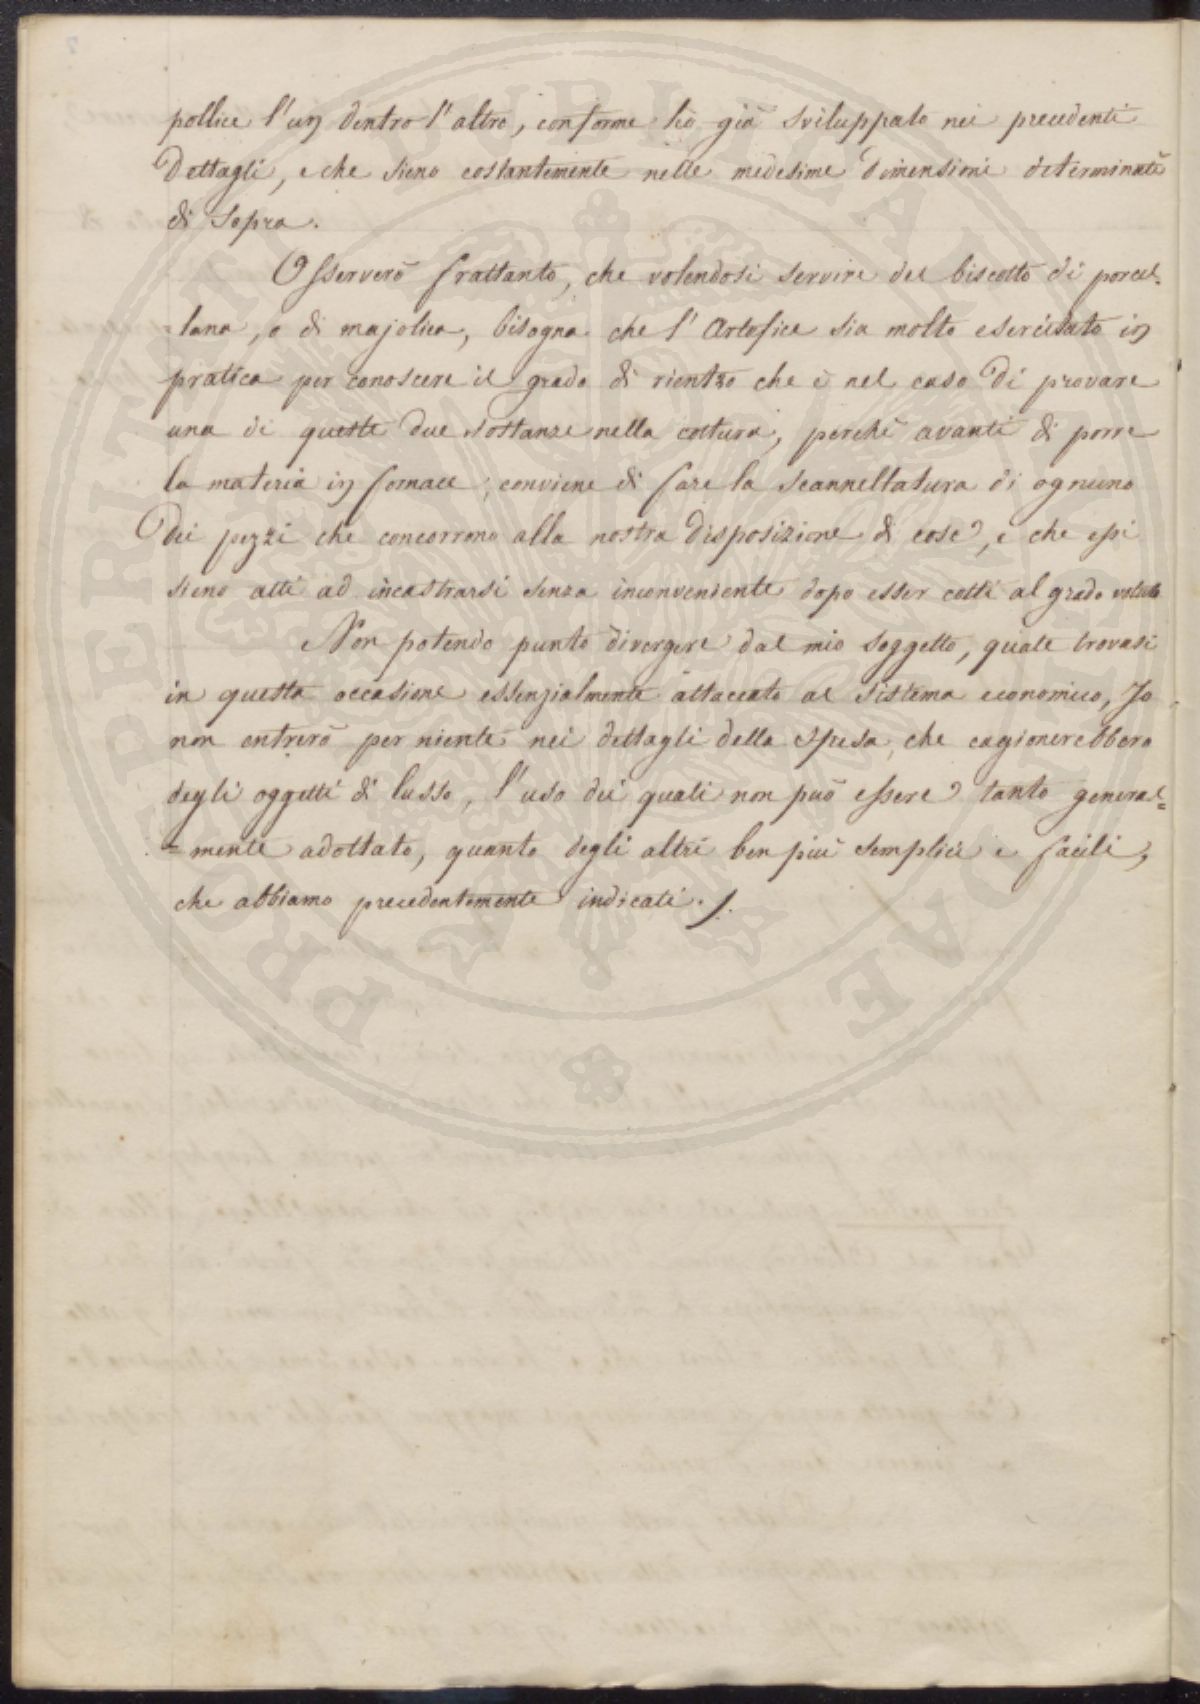 pollice l'un dentro l'altro, conforme hò già sviluppato nei precedenti
Dettagli, e che sieno costantemente nelle medesime dimensioni determinate
di sopra.
Osserverò frattanto, che volendosi servire del biscotto di porcel-
lana, o di majolica, bisogna che l'Artefice sia molto esercitato in
pratica per conoscere il grado di rientro che è nel caso di provare
una di queste due sostanze nella cottura, perchè avanti di porre
la materia in fornace, conviene di fare la scannellatura di ognuno
dei pezzi che concorrono alla nostra disposizione di cose, e che essi
sieno atti ad incastrarsi senza inconveniente dopo esser cotti al grado voluto
Non potendo punto divergere dal mio soggetto, quale trovasi
in questa occasione essenzialmente attaccato al sistema economico, Io
non entrerò per niente nei dettagli della spesa, che cagionerebbero
degli oggetti di lusso, l'uso dei quali non può essere tanto general=
=mente adottato, quanto degli altri ben più semplici e facili,
che abbiamo precedentemente indicati ./.
PROPERITET PUBLICA